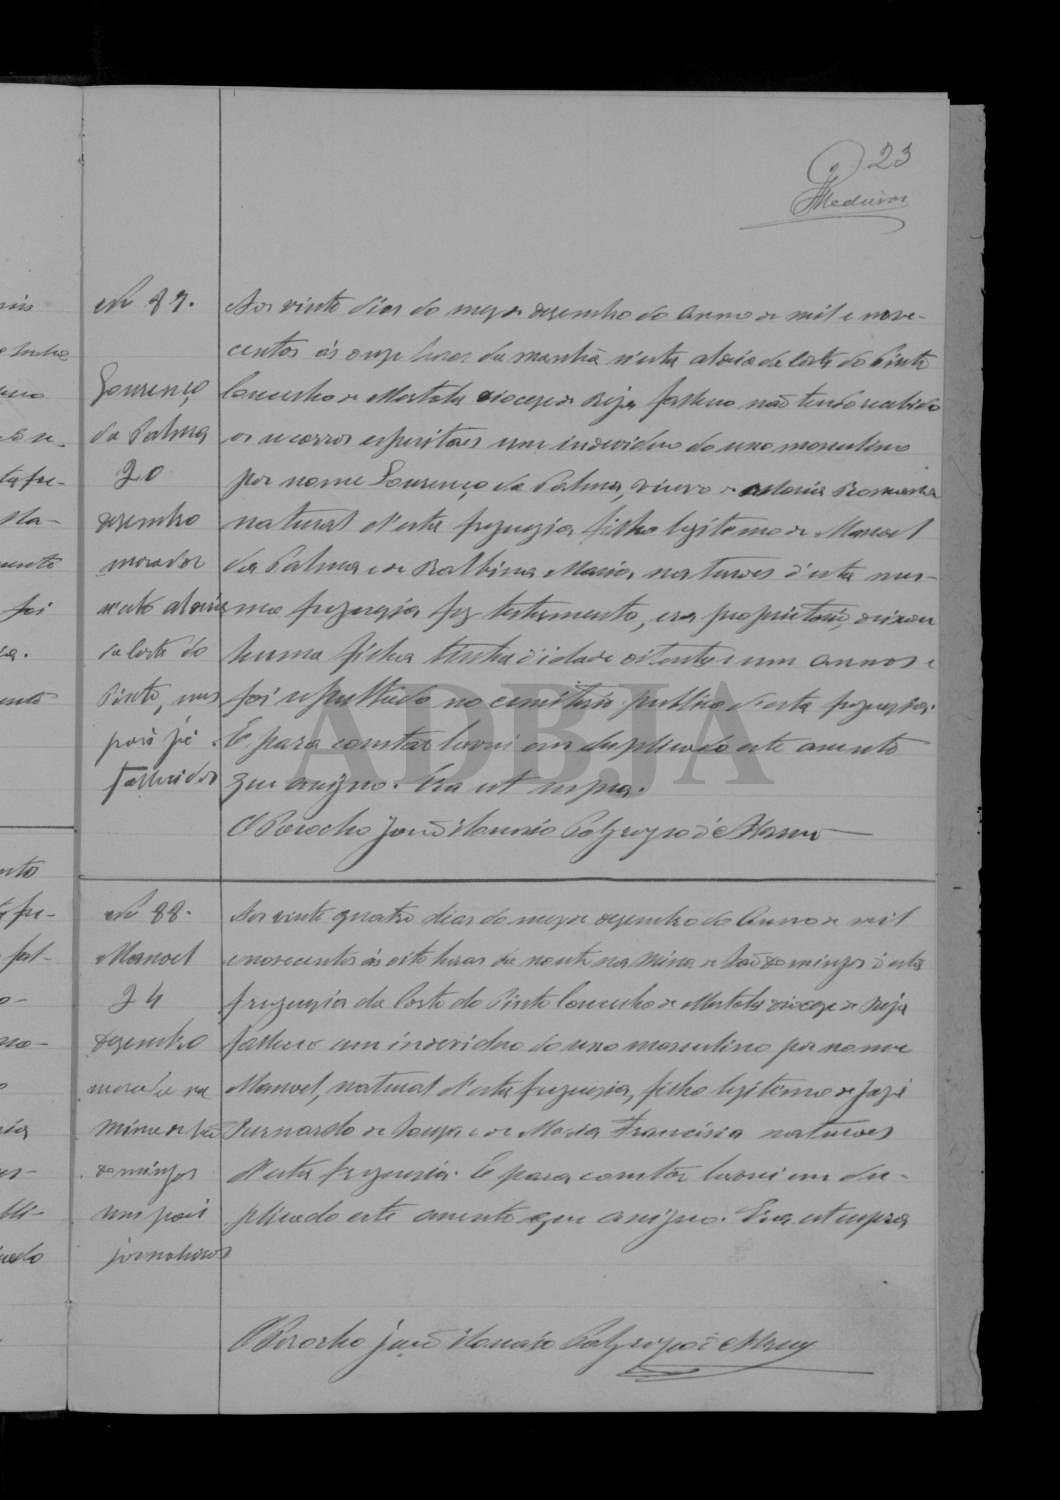 23
Medeiros
No 87.
Lourenço
da Palma
20
dezembro
morador
n'esta aldeia
da Corte do
Pinto, seus
pais já
fallecidos
Aos vinte dias do mez de dezembro do anno de mil e nove-
centos ás onze horas da manhã n'esta aldeia da Corte do Pinto
Concelho de Mertola diocese de Beja falleceu não tendo recebido
os socorros espirituaes um individuo do sexo masculino
por nome Lourenço da Palma, viuvo de Maria Romana
natural d'esta freguezia filho legitimo de Manoel
da Palma e de Balbina Maria, naturaes d'esta mes-
ma freguezia fez testamento, era proprietario, deixou
huma filha tinha d'idade oitenta e um annos e
foi sepultado no cemiterio publico d'esta freguezia.
E para constar lavrei em duplicado este assento
que assigno. Era ut supra.
O Parocho
No 88.
Manoel
24
dezembro
morador na
mina de São
Domingos
seus pais
jornaleiros
Aos vinte quatro dias do mez de dezembro do anno de mil
e novecentos ás oito horas da noute na Mina de São Domingos d'esta
freguezia da Corte do Pinto Concelho de Mertola diocese de Beja
falleceu um individuo do sexo masculino por nome
Manoel, natural d'esta freguezia, filho legitimo de José
Bernardo de Souza e de Maria Francisca naturaes
d'esta freguezia. E para constar lavrei em du-
plicado este assento que assigno. Era ut supra
O Parocho
ADBJA